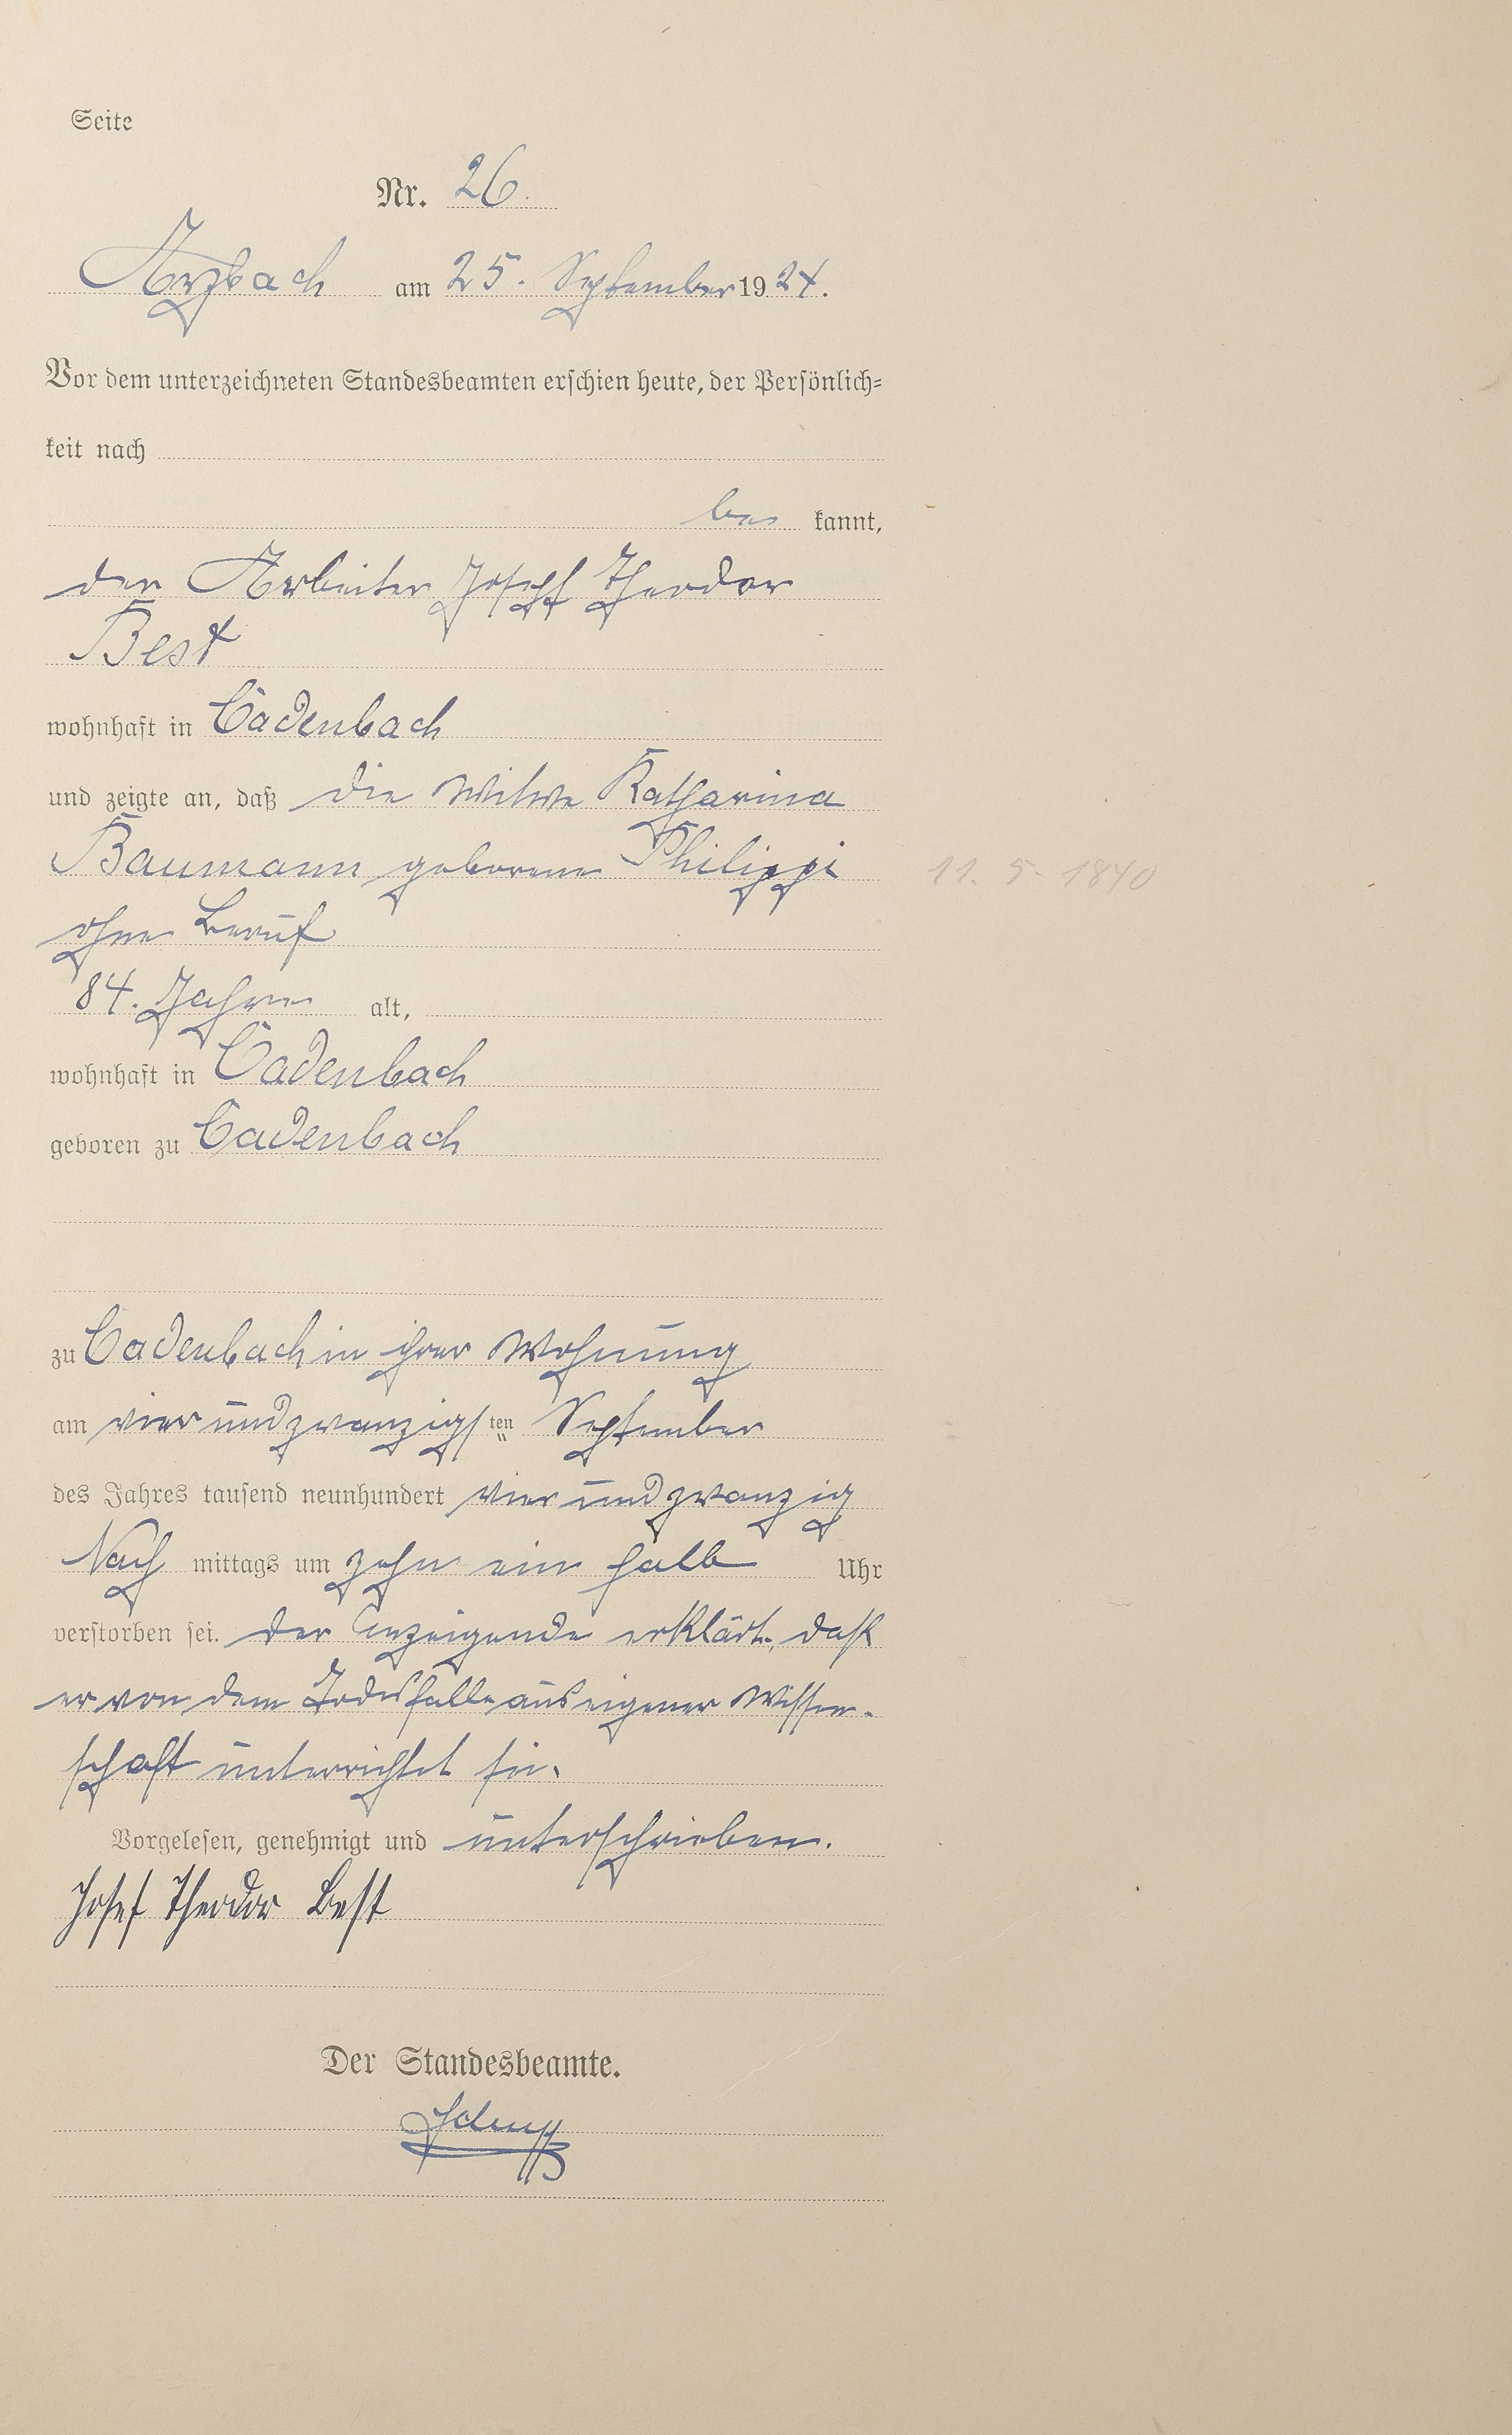 Seite
Nr. 26.
Arzbach am 25. September 1924.
Vor dem unterzeichneten Standesbeamten erschien heute, der Persönlich=
keit nach
be kannt,
der Arbeiter Joseph Theodor
Best
wohnhaft in Cadenbach
und zeigte an, daß die Witwe Katharina
Baumann geborene Philippi
11. 5. 1840
ohne Beruf
84. Jahre alt,
wohnhaft in Cadenbach
geboren zu Cadenbach
zu Cadenbach in ihrer Wohnung
am vier und zwanzigsten September
des Jahres tausend neunhundert vier und zwanzig
Nach mittags um zehn ein halb Uhr
verstorben sei. Der Anzeigende erklärte, daß
er von dem Todesfalle aus eigener Wissen-
schaft unterrichtet sei.
Vorgelesen, genehmigt und unterschrieben.
Josef Theodor Best
Der Standesbeamte.